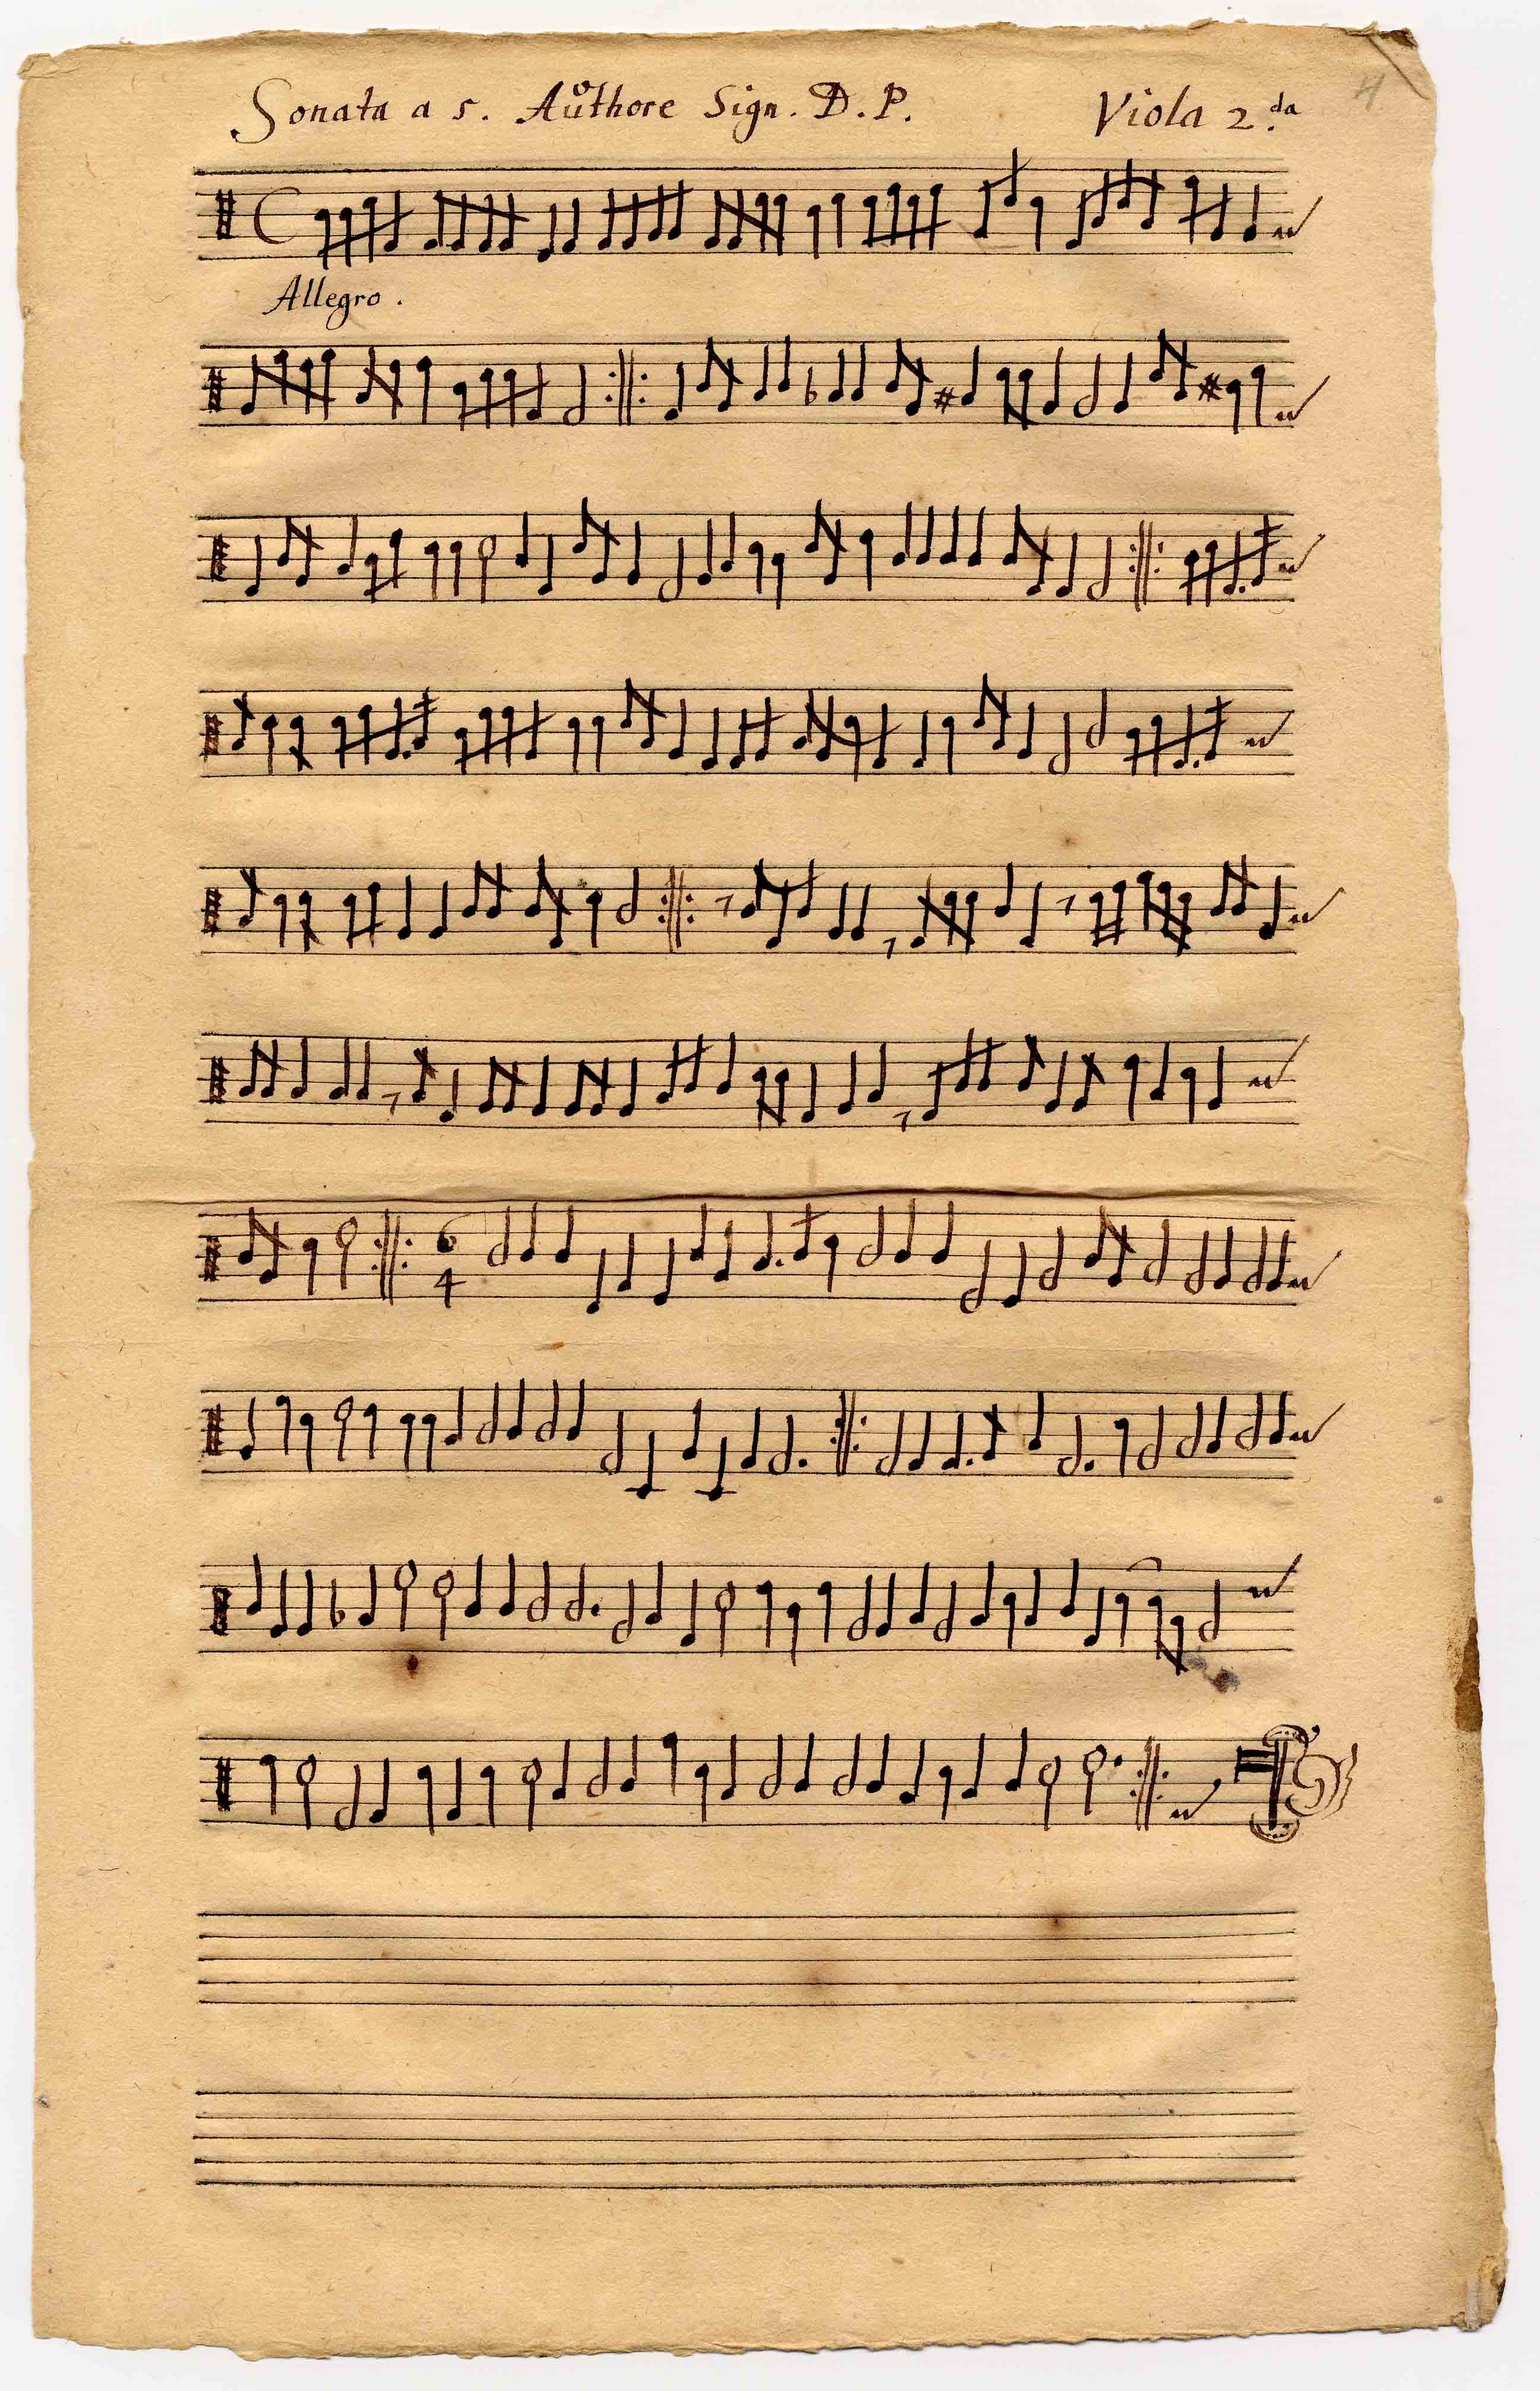 Sonata a 5. Aůthore Sign. D. P. Viola 2.da 4
Allegro.
6
4